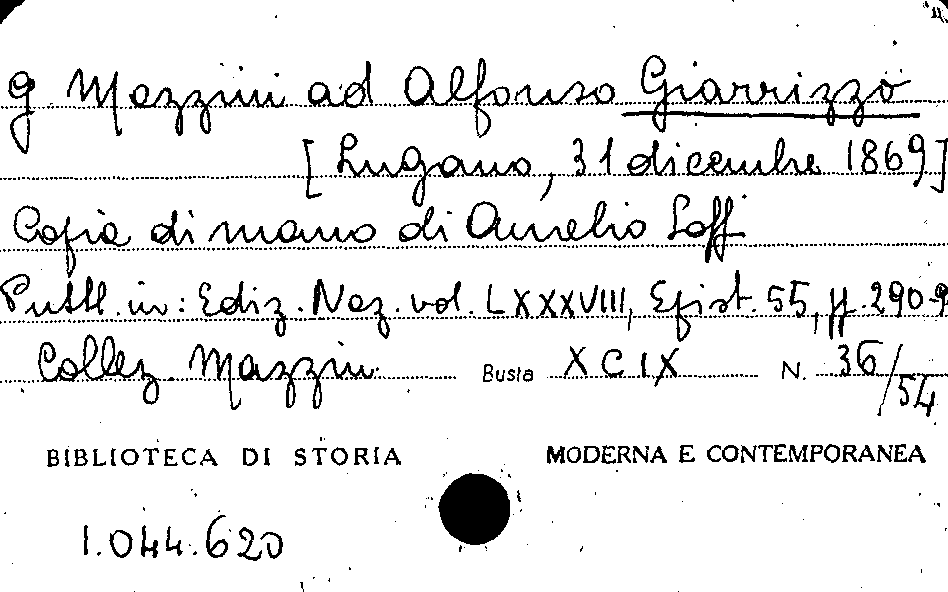 G Mazzini ad Alfonso Giarrizzo
[Lugano, 31 dicembre 1869]
Copia di mano di Aurelio Saffi
Pubbl. in: Ediz. Naz. vol. LXXXVIII, Epist. 55, pp. 290-9
Collez. Mazzini Busta XCIX N. 36/54
BIBLIOTECA DI STORIA MODERNA E CONTEMPORANEA
1.044.620